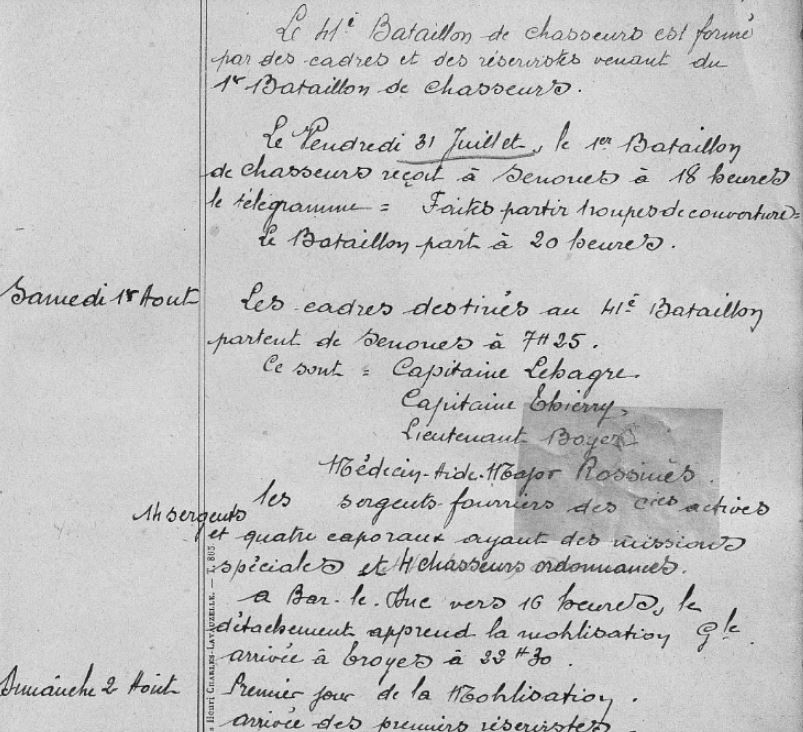 Le 41e Bataillon de chasseurs est formé
par des cadres et des réservistes venant du
1er Bataillon de chasseurs.
Le Vendredi 31 Juillet, le 1er Bataillon
de chasseurs reçoit à Senones à 18 heures
le télégramme = Faites partir troupes de couverture =
Le Bataillon part à 20 heures.
Samedi 1er Aout
Les cadres destinés au 41e Bataillon
partent de Senones à 7H25.
Ce sont = Capitaine Lebagre.
Capitaine Thierry,
Lieutenant Boyer
Médecin-Aide-Major Rossinès.
14 sergents les sergents fourriers des Cies actives
et quatre caporaux ayant des missions
spéciales et 4 chasseurs ordonnances.
a Bar-le-Duc vers 16 heures, le
détachement apprend la mobilisation Gle
arrivée à Troyes à 22H30.
Dimanche 2 Août
Premier jour de la Mobilisation.
arrivée des premiers réservistes.
Henri CHARLES-LAVAUZELLE. —